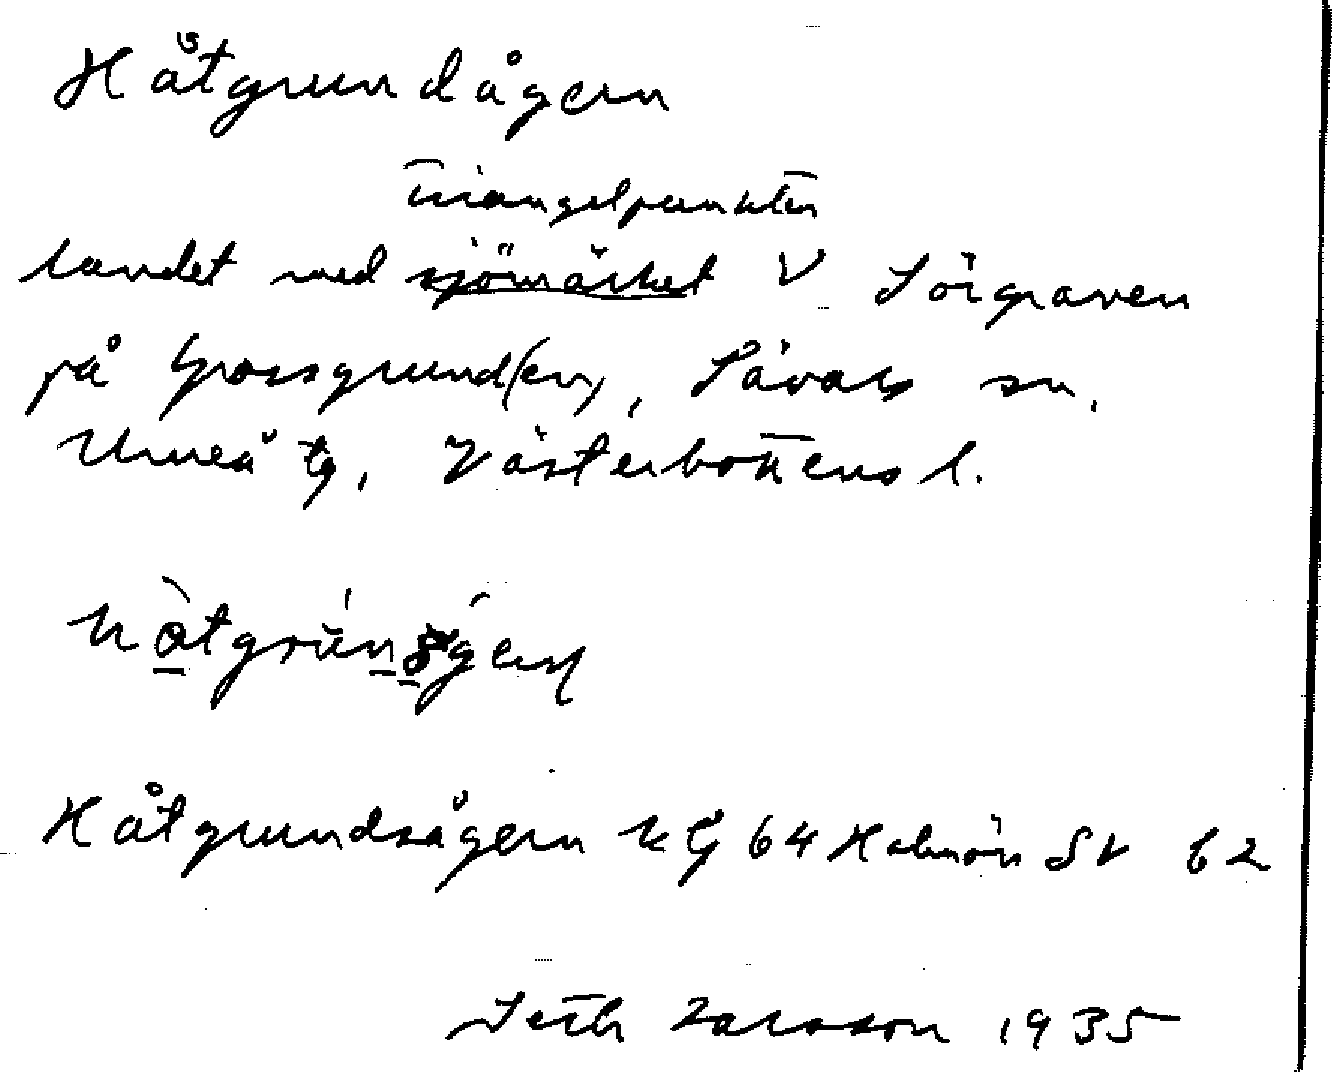 Håtgrundågern
triangelpunkten
landet med sjömärket V Sörgraven
på Grossgrund(en), Sävars sn.
Umeå tg, Västerbottens l.
Håtgrundsågern KG 64 Holmön SV 62
Seth Larsson 1935